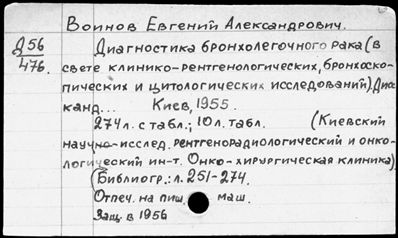 Воинов Евгений Александрович.
Д56
476.
Диагностика бронхолегочного рака (в
свете клинико-рентгенологических, бронхоско-
пических и цитологических исследований). Дисс
канд... Киев, 1955.
274 л. с табл.; 10 л. табл. (Киевский
научно-исслед. рентгенорадиологический и онко-
логический ин-т. Онко-хирургическая клиника)
(Библиогр.: л. 251-274.
Отпеч. на пиш. маш.
Защ. в 1956